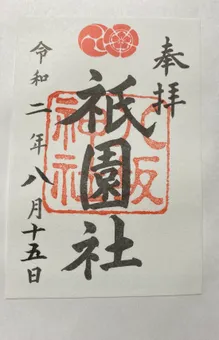 奉拝
祇園社
八坂神社
令和二年八月十五日